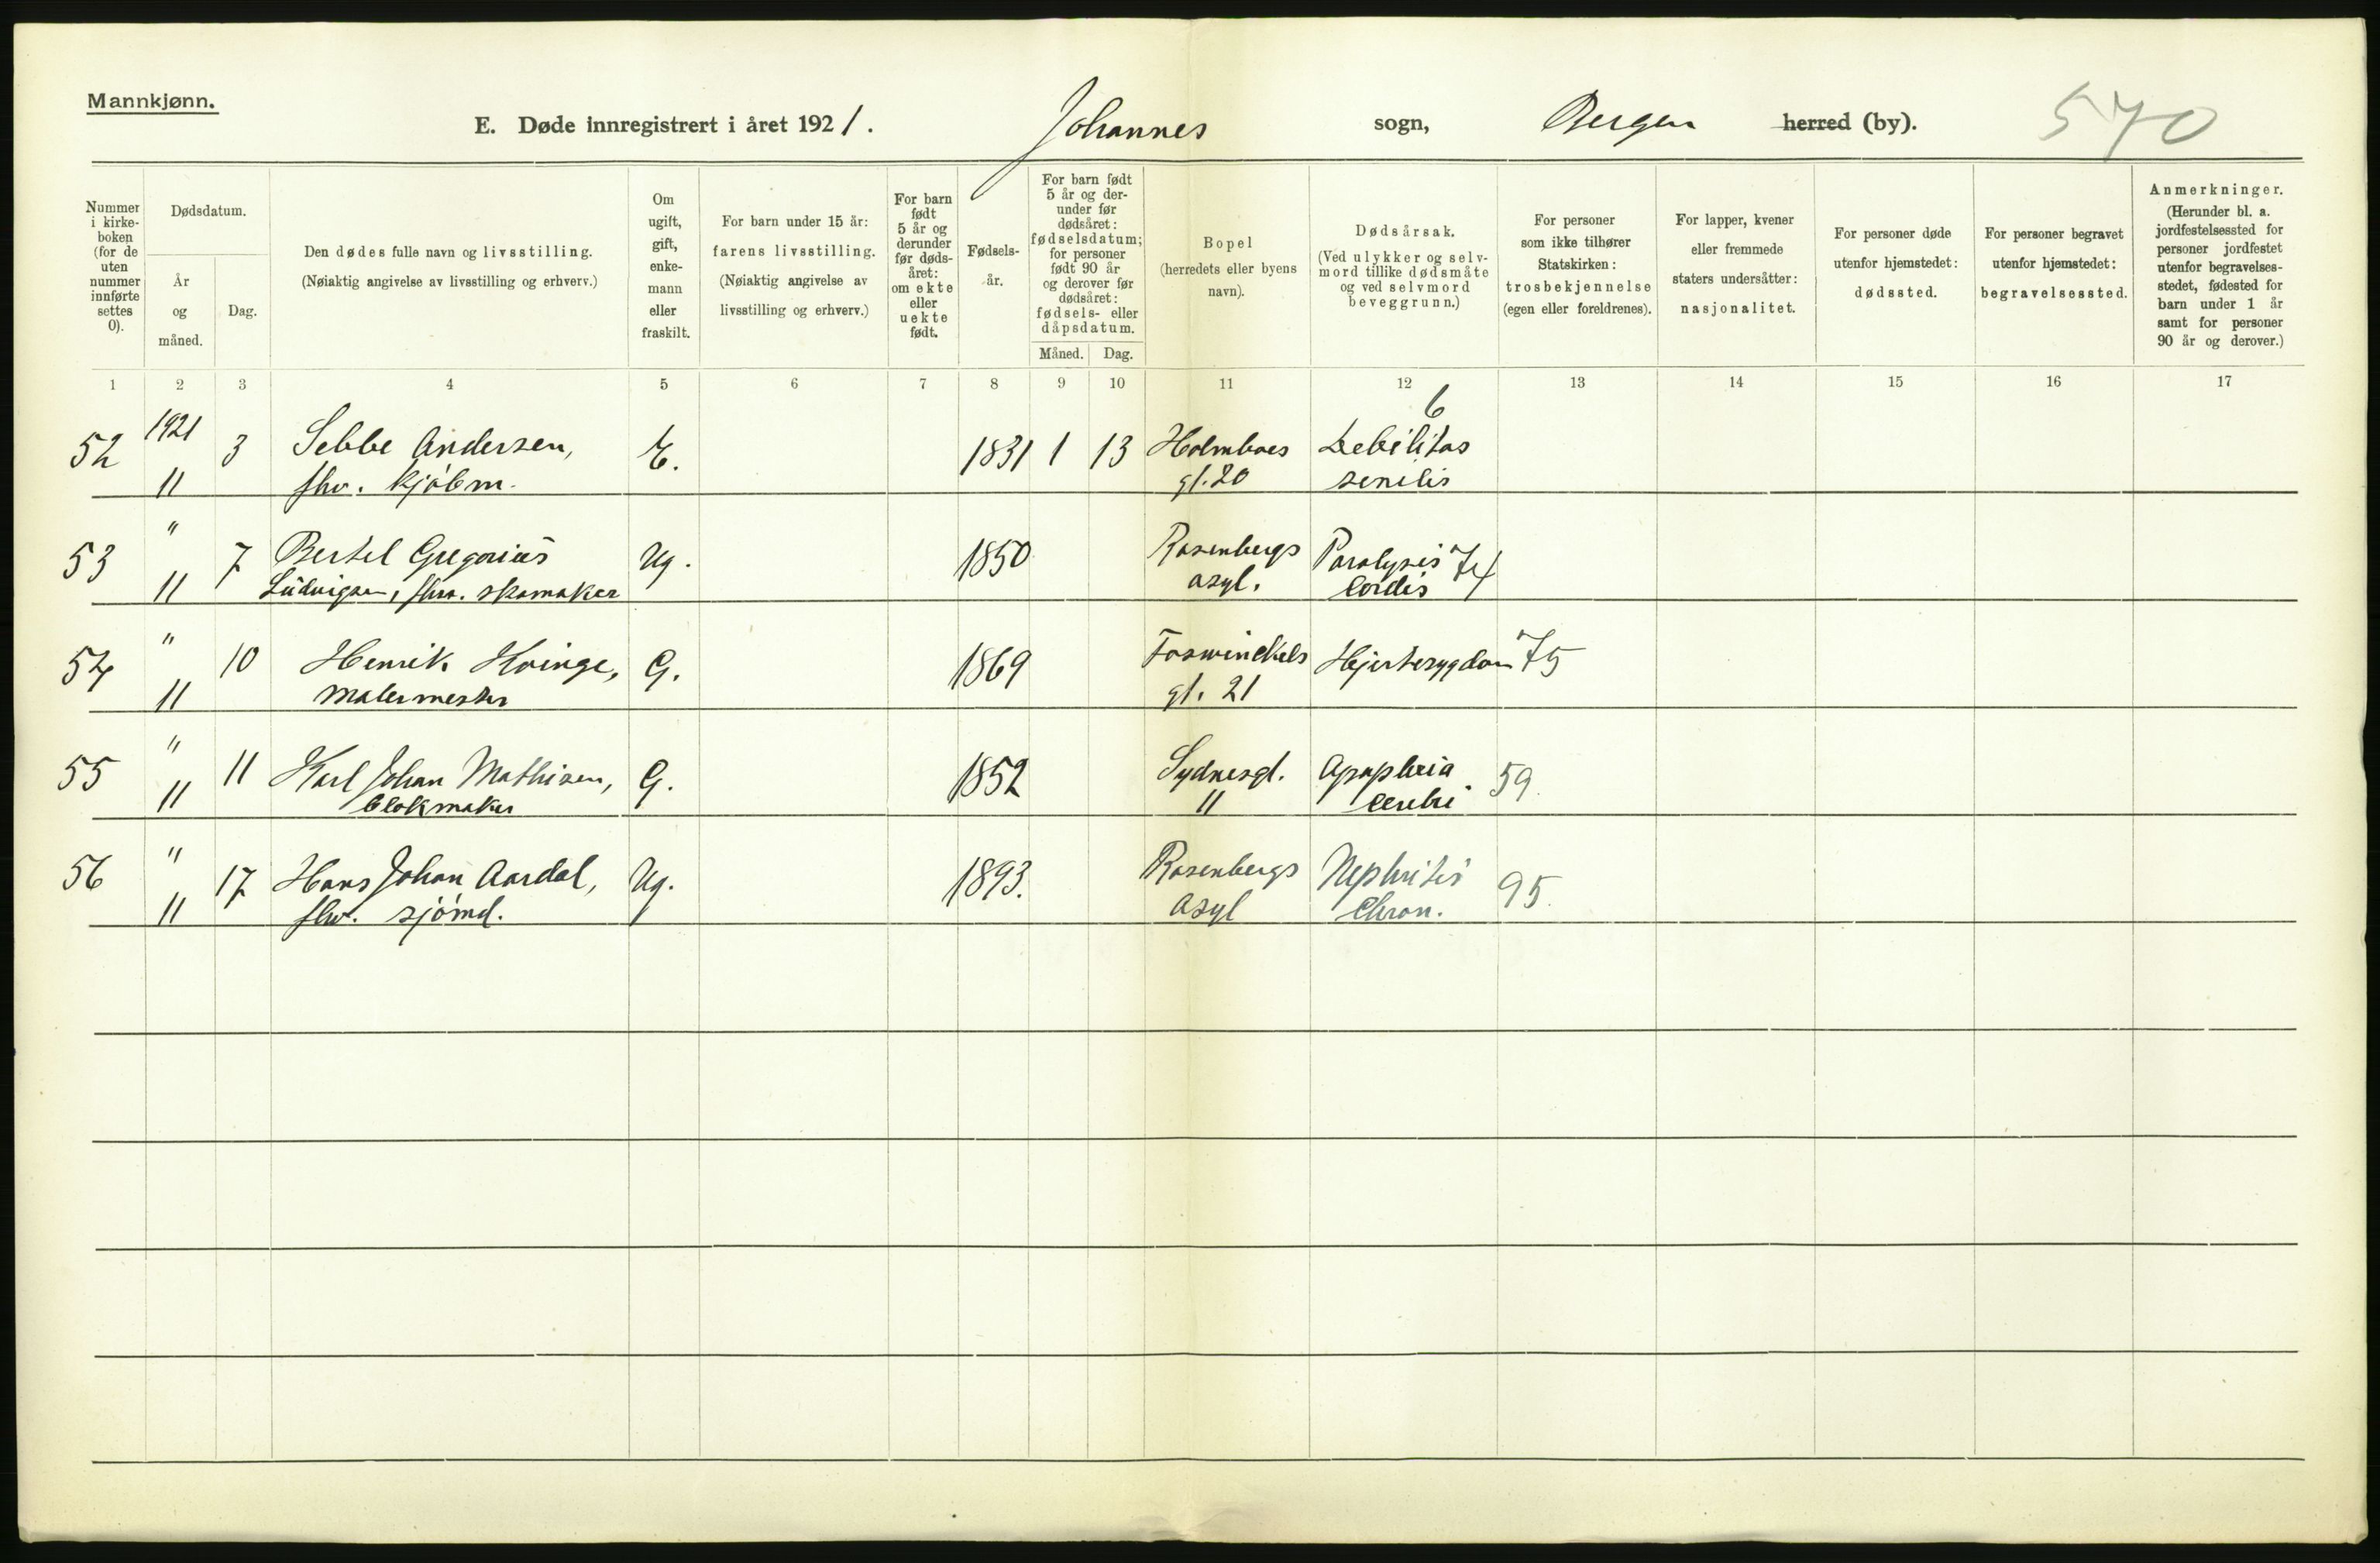 Mannkjønn.
E. Døde innregistrert i året 1921. Johannes sogn, Bergen herred (by). 570
Nummer i kirke- boken (for de uten nummer innførte settes 0).
Dødsdatum.
År og måned.
Dag.
Den dødes fulle navn og livsstilling.
(Nøiaktig angivelse av livsstilling og erhverv.)
Om ugift, gift, enke- mann eller fraskilt.
For barn under 15 år:
farens livsstilling.
(Nøiaktig angivelse av livsstilling og erhverv.)
For barn født 5 år og derunder før døds- året: om ekte eller uekte født.
Fødsels- år.
For barn født 5 år og der- under før dødsåret: fødselsdatum; for personer født 90 år og derover før dødsåret: fødsels- eller dåpsdatum.
Måned. Dag.
Bopel
(herredets eller byens navn).
Dødsårsak.
(Ved ulykker og selv- mord tillike dødsmåte og ved selvmord beveggrunn.)
For personer som ikke tilhører Statskirken: trosbekjennelse (egen eller foreldrenes).
For lapper, kvener eller fremmede staters undersåtter: nasjonalitet.
For personer døde utenfor hjemstedet: dødssted.
For personer begravet utenfor hjemstedet: begravelsessted.
Anmerkninger.
(Herunder bl. a. jordfestelsessted for personer jordfestet utenfor begravelses- stedet, fødested for barn under 1 år samt for personer 90 år og derover.)
1 2 3 4 5 6 7 8 9 10 11 12 13 14 15 16 17
6
52 1921 3 Sebbe Andersen, E. 1831 1 13 Holmboes Debilitas
11 fhv. kjøbm. gt. 20 senilis
53 " 7 Bertel Gregorius Ug. 1850 Rosenbergs Paralysis 74
11 Ludvigsen, fhv. skomaker asyl. Cordis
54 " 10 Henrik Hvinge, G. 1869 Foswinckels Hjertesygdom 75
11 malermester gt. 21
55 " 11 Karl Johan Mathisen, G. 1852 Sydnesgt. Apoplexia 59.
11 blokmaker 11 Cerebri
56 " 17 Hans Johan Aardal, Ug. 1893. Rosenbergs Nephritis 95.
11 fhv. sjømd. Asyl Chron.